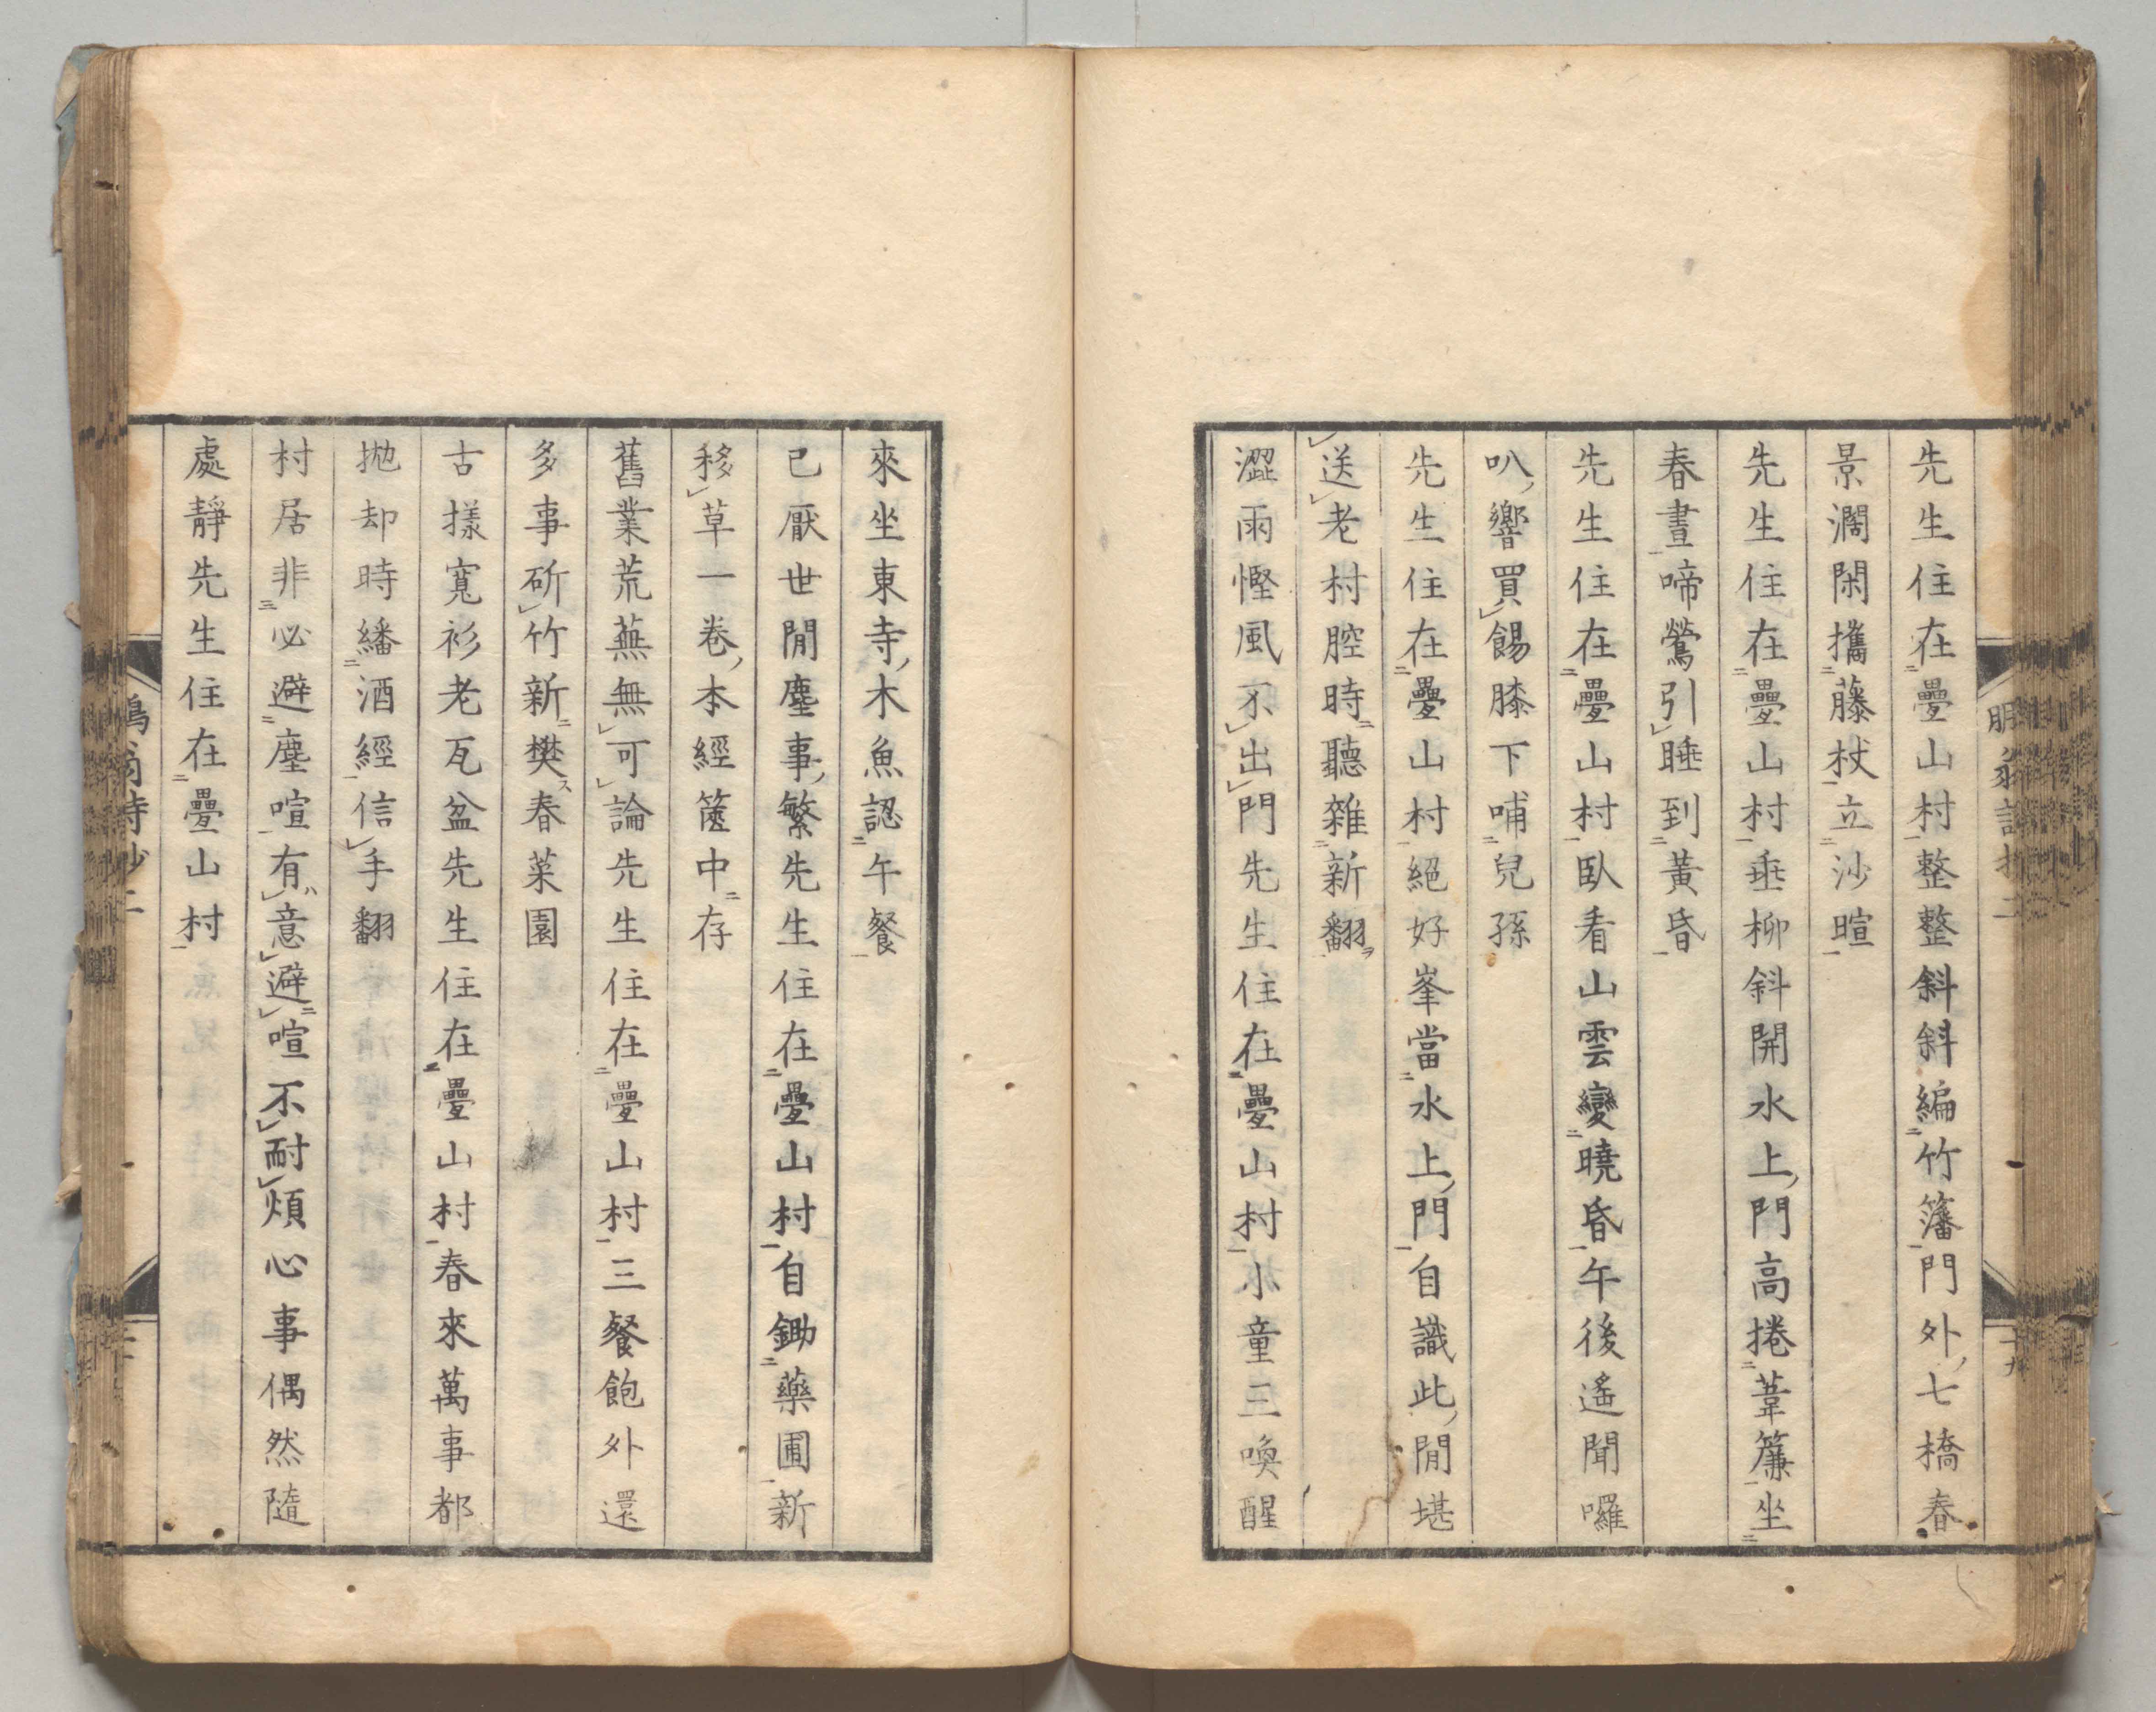 先生住在疊山村整整斜斜編竹籓門外七橋春
景濶閑攜藤杖立沙暄
先生住在疊山村垂柳斜開水上門高捲葦簾坐
春晝啼鶯引睡到黃昏
先生住在疊山村臥看山雲變曉昏午後遙聞囉
叭響買餳膝下哺兒孫
先生住在疊山村絕好峯當水上門自識此閒堪
送老村腔時聽雜新翻
澀雨慳風不出門先生住在疊山村小童三喚醒
來坐東寺木魚認午餐
已厭世閒塵事繁先生住在疊山村自鋤藥圃新
移草一卷本經篋中存
舊業荒蕪無可論先生住在疊山村三餐飽外還
多事斫竹新樊春菜園
古樣寬衫老瓦盆先生住在疊山村春來萬事都
拋却時繙酒經信手翻
村居非必避塵喧有意避喧不耐煩心事偶然隨
處靜先生住在疊山村